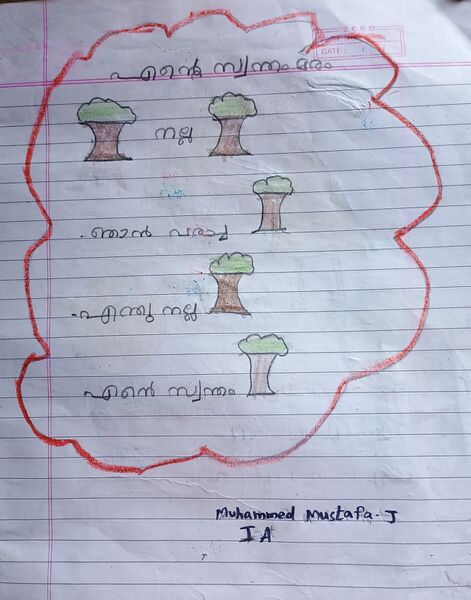 എന്റെ സ്വന്തം മരം
നല്ല
ഞാൻ വരച്ച
എന്തു നല്ല
എന്റെ സ്വന്തം
Muhammed Mustafa. J
I A
DATE: